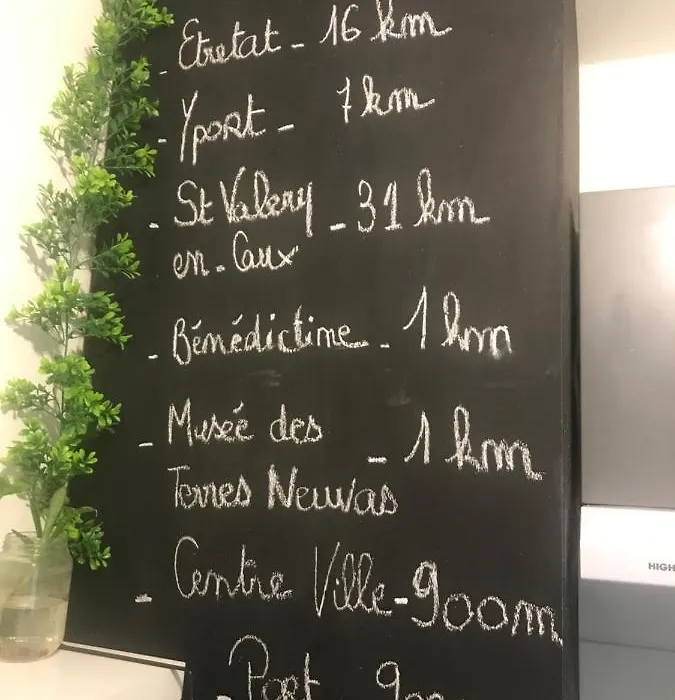 - Etretat - 16 km
- Yport - 7 km
- St Valery - 31 km
en-Caux
- Bénédictine - 1 km
- Musée des - 1 km
Terres Neuvas
- Centre Ville - 900m
- Port
HIGH